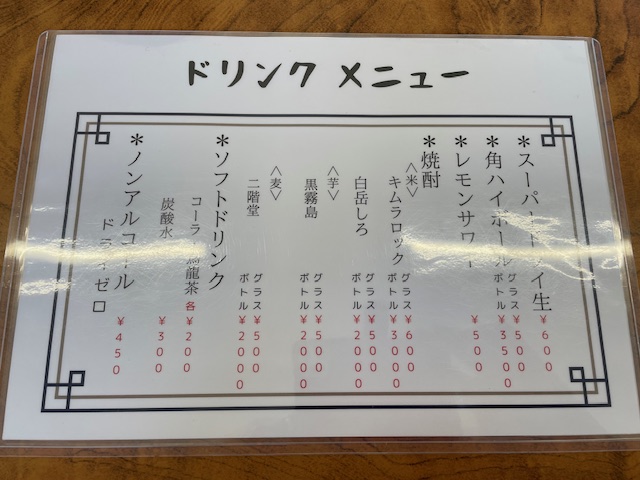 ドリンク メニュー
＊スーパードライ生 ￥600
＊角ハイボール グラス ￥500
ボトル ￥3500
＊レモンサワー ￥500
＊焼酎
〈米〉
キムラロック グラス ￥600
ボトル ￥3000
白岳しろ グラス ￥500
ボトル ￥2000
〈芋〉
黒霧島 グラス ￥500
ボトル ￥2000
〈麦〉
二階堂 グラス ￥500
ボトル ￥2000
＊ソフトドリンク
コーラ・烏龍茶 各￥200
炭酸水 ￥300
＊ノンアルコール
ドライゼロ ￥450